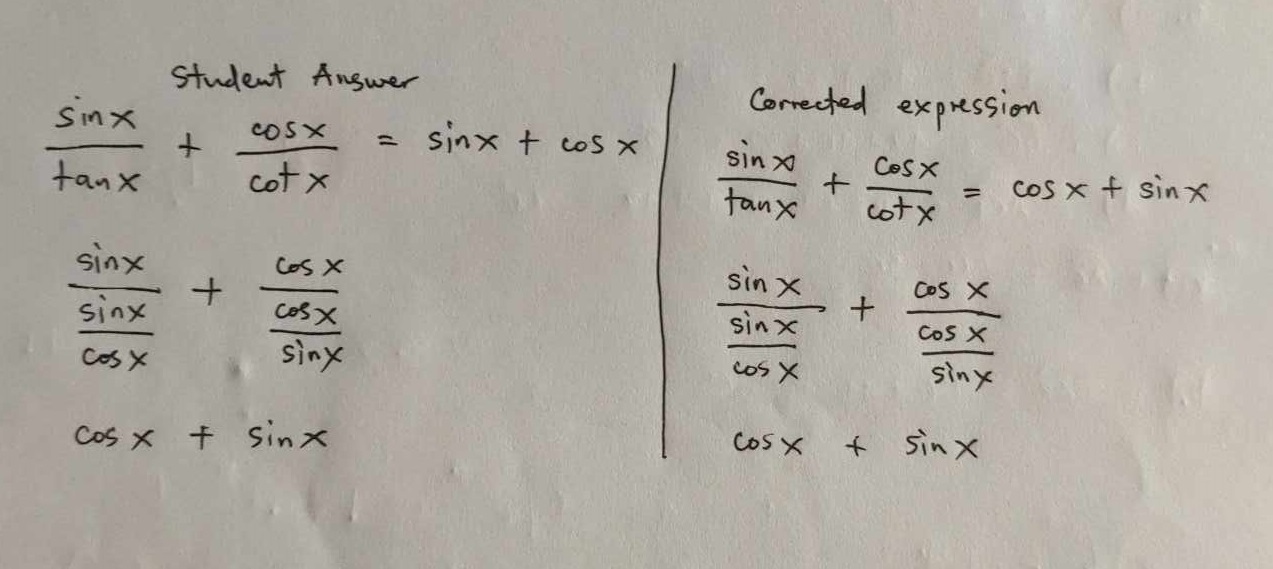 Student Answer
sinx/tanx + cosx/cotx = sinx + cosx
sinx/(sinx/cosx) + cosx/(cosx/sinx)
cosx + sinx
Corrected expression
sinx/tanx + cosx/cotx = cosx + sinx
sinx/(sinx/cosx) + cosx/(cosx/sinx)
cosx + sinx